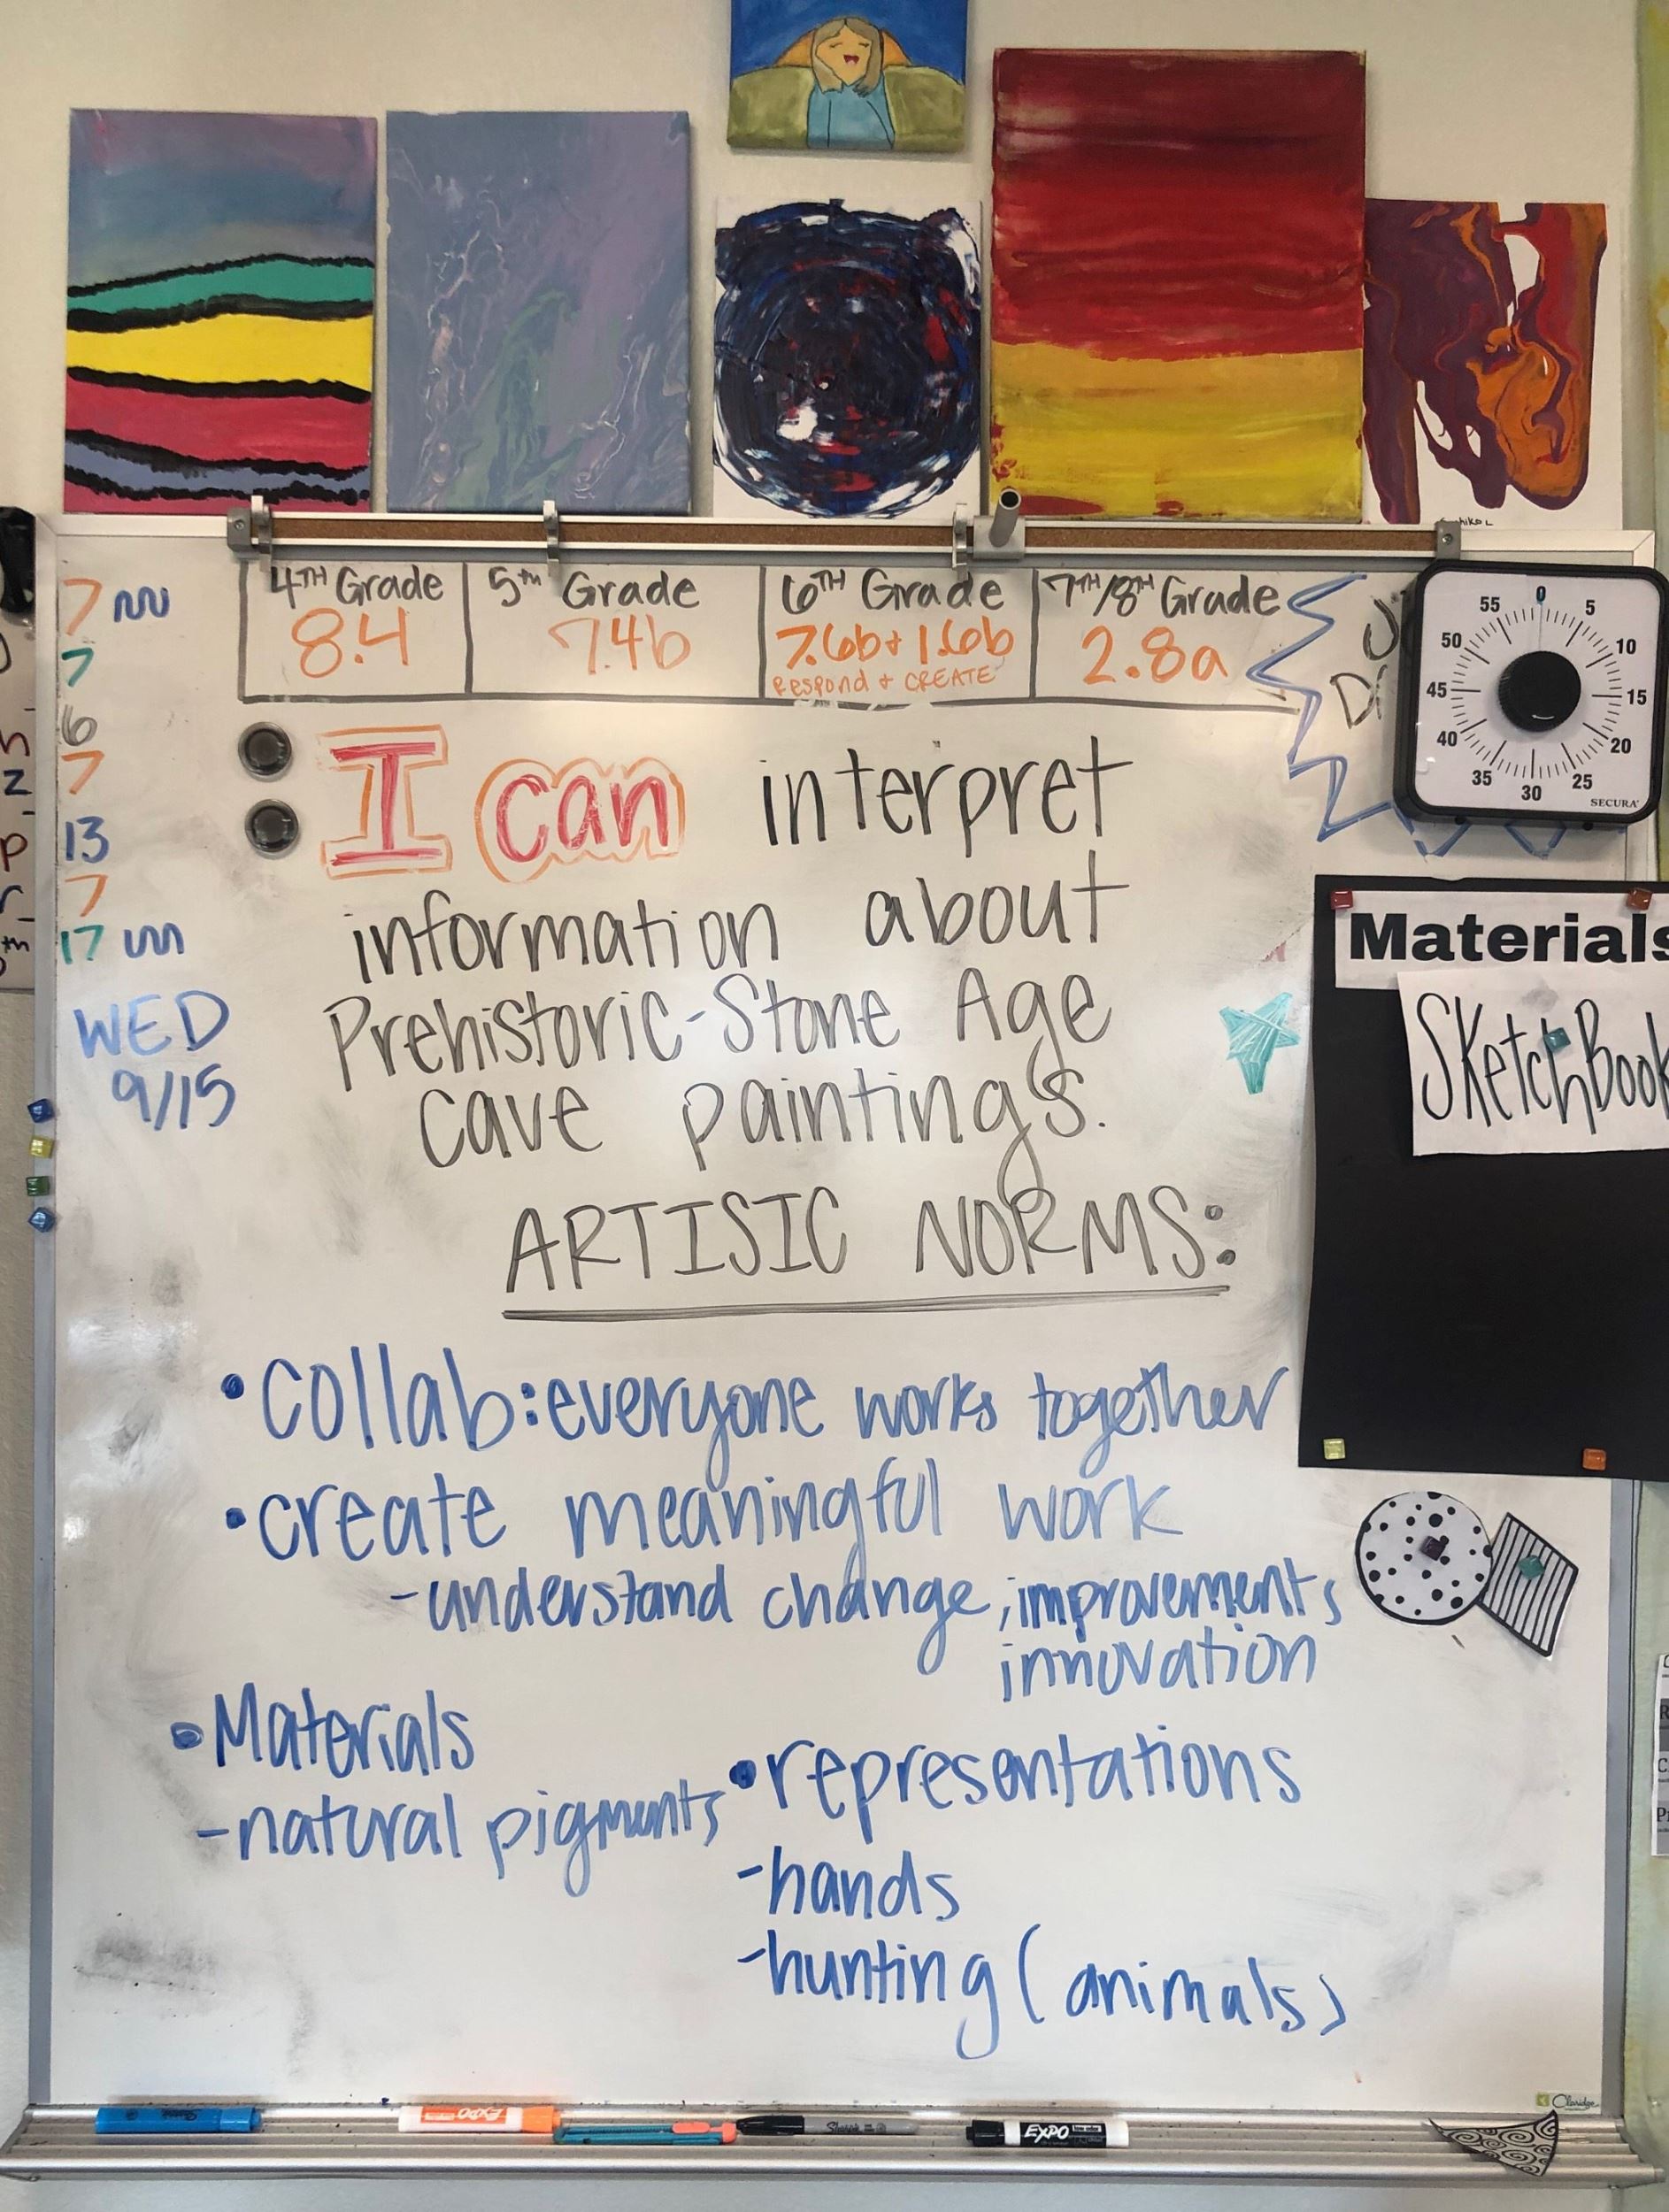 4TH Grade
8.4
5th Grade
7.4b
6TH Grade
7.6b + 1.6b
RESPOND + CREATE
7TH/8TH Grade
2.8a
7
7
6
7
13
7
17
WED
9/15
I can interpret
information about
Prehistoric-Stone Age
cave paintings.
ARTISIC NORMS:
•collab: everyone works together
•create meaningful work
-understand change, improvements
innovation
•Materials
-natural pigments
•representations
-hands
-hunting (animals)
0
5
10
15
20
25
30
35
40
45
50
55
SECURA
Materials
SketchBook
EXPO
Sharpie
EXPO
Claridge